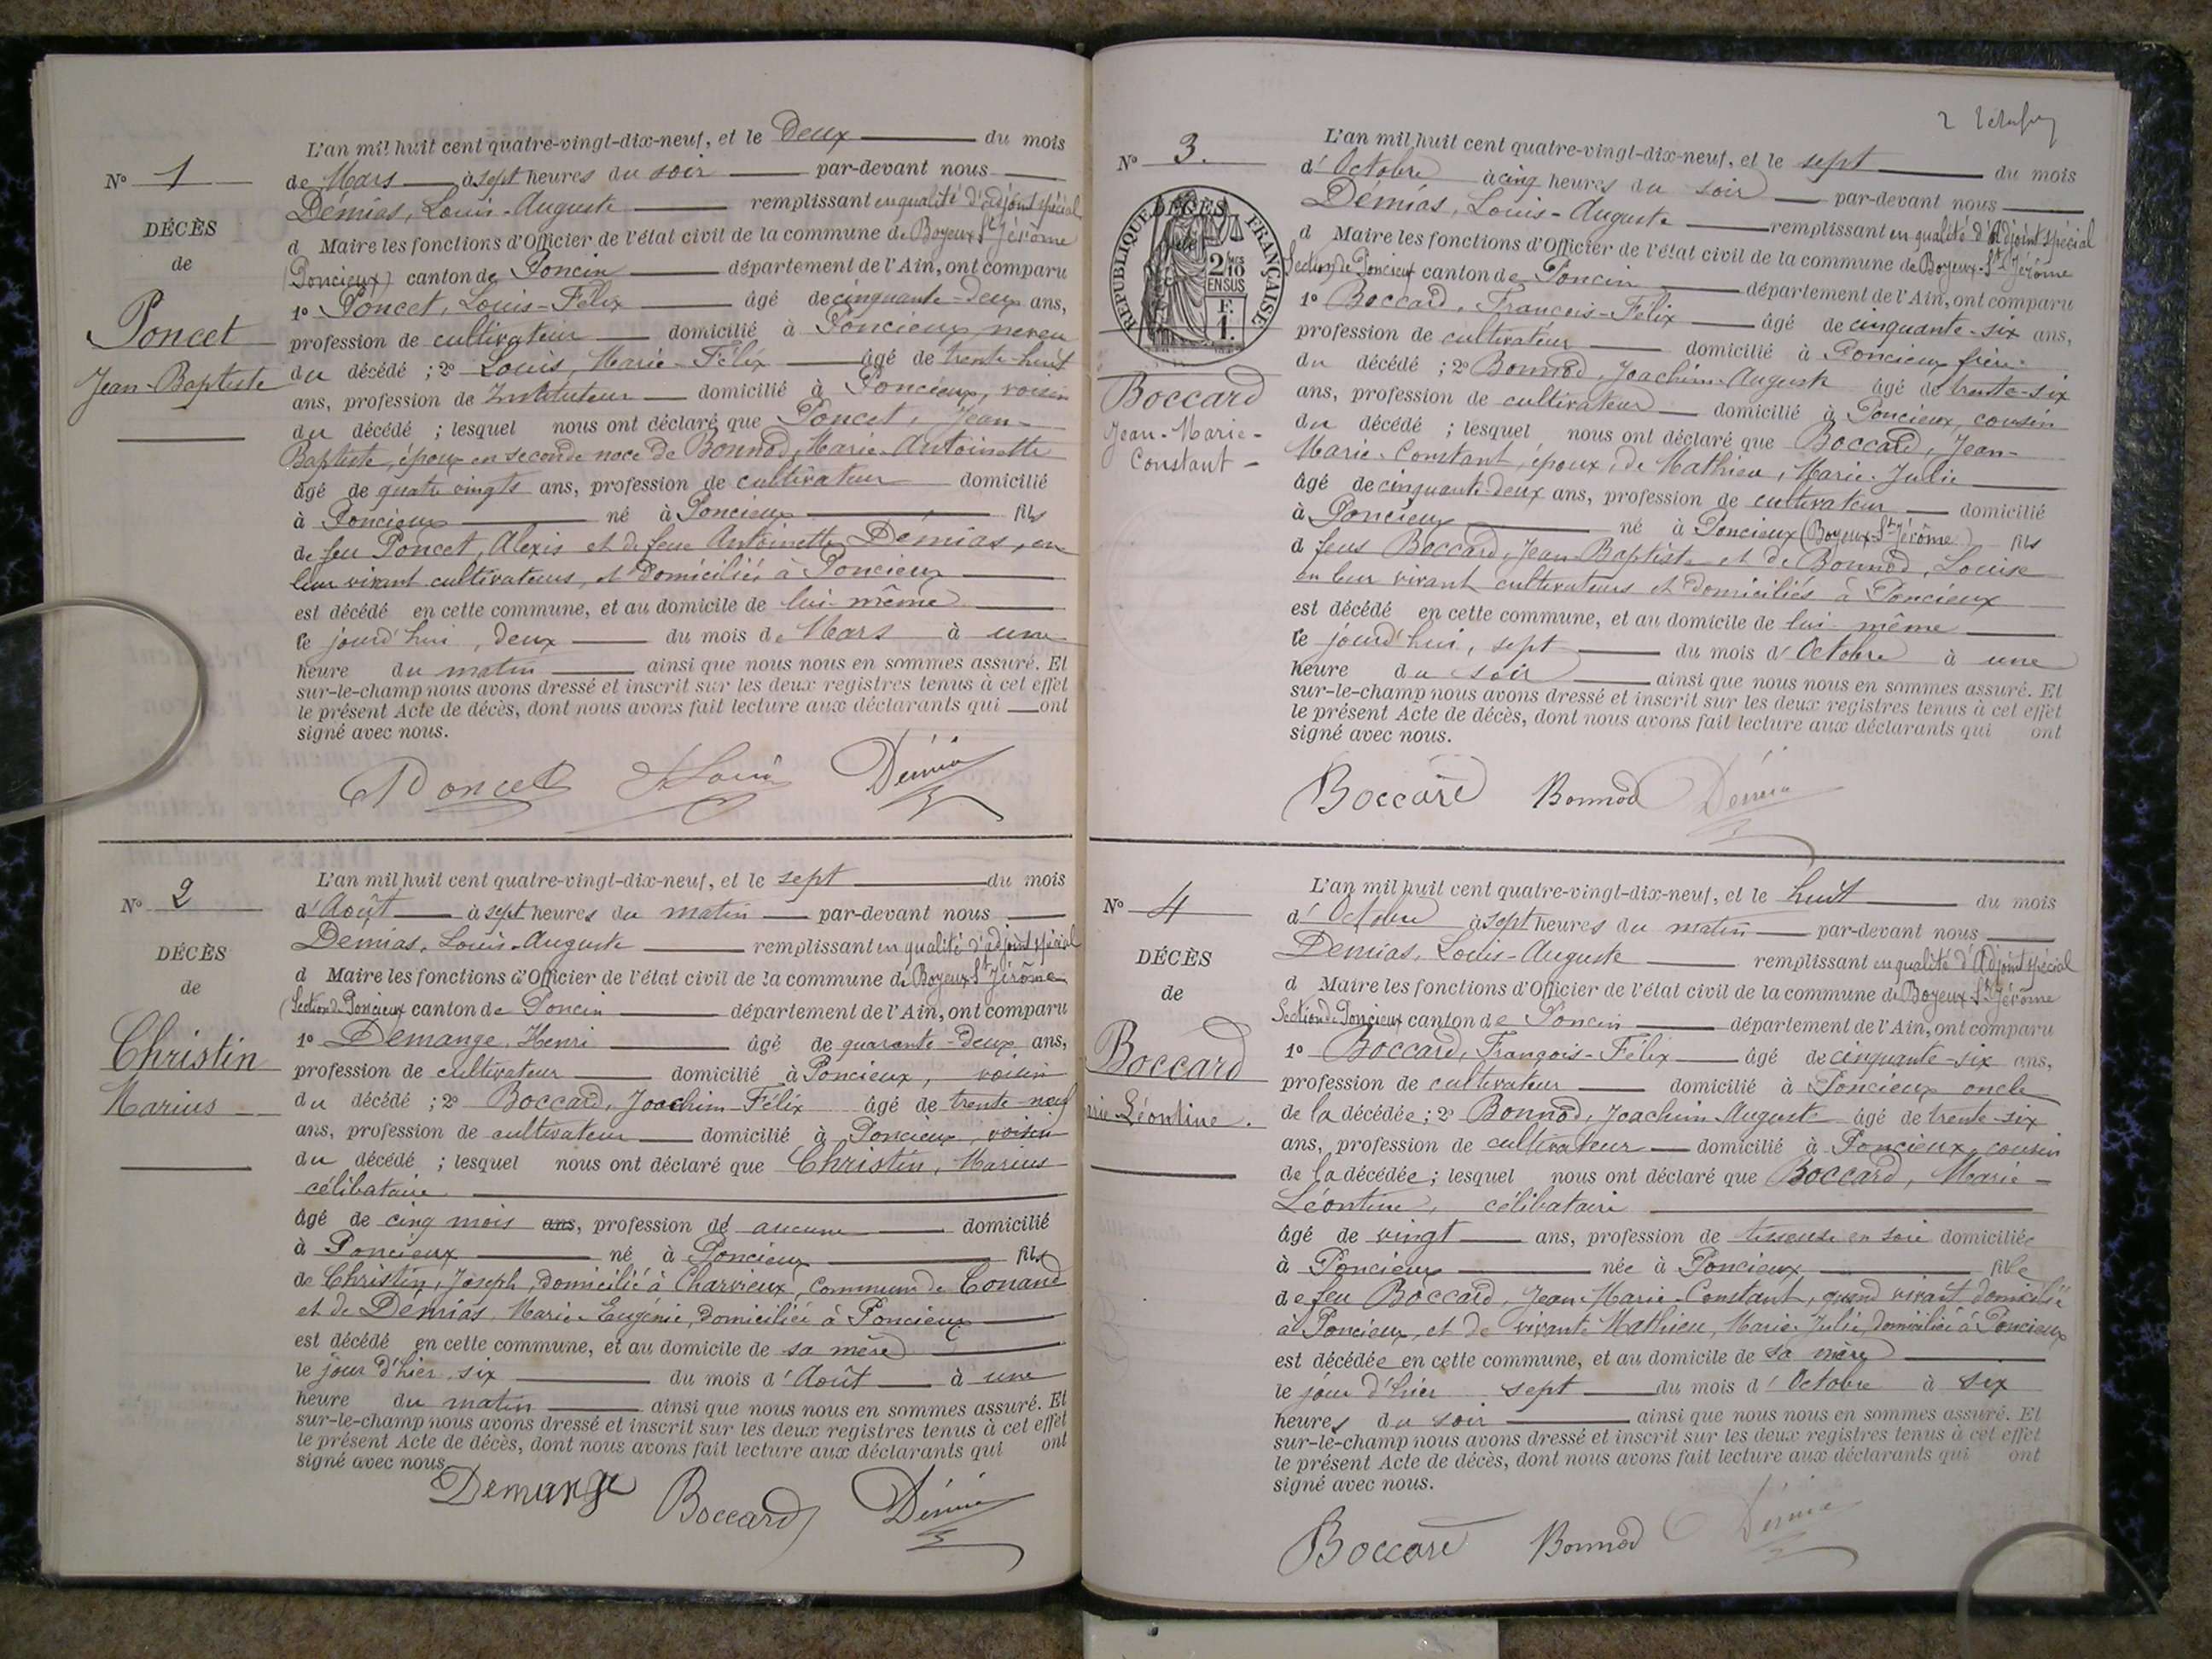 L'an mil huit cent quatre-vingt-dix-neuf, et le Deux du mois
N° 1
de Mars à sept heures du soir par-devant nous
Démias, Louis-Auguste remplissant en qualité d'adjoint spécial
DÉCÈS
d Maire les fonctions d'Officier de l'état civil de la commune de Boyeux St Jérôme
de
(Poncieux) canton de Poncin département de l'Ain, ont comparu
1° Poncet, Louis-Félix âgé de cinquante-deux ans,
Poncet
profession de cultivateur domicilié à Poncieux neveu
Jean-Baptiste
du décédé ; 2° Louis, Marie-Félix âgé de trente-huit
ans, profession de Instituteur domicilié à Poncieux, voisin
du décédé ; lesquel nous ont déclaré que Poncet, Jean-
Baptiste, époux en seconde noce de Bonnod, Marie-Antoinette
âgé de quatre vingts ans, profession de cultivateur domicilié
à Poncieux né à Poncieux fils
de feu Poncet, Alexis et de feue Antoinette Démias, en
leur vivant cultivateurs, et domiciliés à Poncieux
est décédé en cette commune, et au domicile de lui-même
le jourd'hui, deux du mois de Mars à une
heure du matin ainsi que nous nous en sommes assuré. Et
sur-le-champ nous avons dressé et inscrit sur les deux registres tenus à cet effet
le présent Acte de décès, dont nous avons fait lecture aux déclarants qui ont
signé avec nous.
Poncet Louis Démia
L'an mil huit cent quatre-vingt-dix-neuf, et le sept du mois
N° 2
d'Août à sept heures du matin par-devant nous
Demias, Louis-Auguste remplissant en qualité d'adjoint spécial
DÉCÈS
d Maire les fonctions d'Officier de l'état civil de la commune de Boyeux St Jérôme
de
(Section de Poncieux canton de Poncin département de l'Ain, ont comparu
1° Demange, Henri âgé de quarante-deux ans,
Christin
profession de cultivateur domicilié à Poncieux, voisin
Marius
du décédé ; 2° Boccard, Joachim-Félix âgé de trente-neuf
ans, profession de cultivateur domicilié à Poncieux, voisin
du décédé ; lesquel nous ont déclaré que Christin, Marius
célibataire
âgé de cinq mois ans, profession de aucune domicilié
à Poncieux né à Poncieux fils
de Christin, Joseph, domicilié à Charvieux, commune de Conand
et de Démias, Marie-Eugénie, domiciliée à Poncieux
est décédé en cette commune, et au domicile de sa mère
le jour d'hier, six du mois d'Août à une
heure du matin ainsi que nous nous en sommes assuré. Et
sur-le-champ nous avons dressé et inscrit sur les deux registres tenus à cet effet
le présent Acte de décès, dont nous avons fait lecture aux déclarants qui ont
signé avec nous.
Demange Boccard Démia
2
L'an mil huit cent quatre-vingt-dix-neuf, et le sept du mois
N° 3.
d'Octobre à cinq heures du soir par-devant nous
Démias, Louis-Auguste remplissant en qualité d'Adjoint spécial
RÉPUBLIQUE FRANÇAISE
DÉCÈS
de
2/10 EN SUS
F. 1.
d Maire les fonctions d'Officier de l'état civil de la commune de Boyeux-St Jérôme
Section de Poncieux canton de Poncin département de l'Ain, ont comparu
1° Boccard, François-Félix âgé de cinquante-six ans,
profession de cultivateur domicilié à Poncieux frère
Boccard
du décédé ; 2° Bonnod, Joachim-Auguste âgé de trente-six
Jean-Marie-
ans, profession de cultivateur domicilié à Poncieux, cousin
Constant
du décédé ; lesquel nous ont déclaré que Boccard, Jean-
Marie-Constant, époux, de Mathieu, Marie-Julie
âgé de cinquante-deux ans, profession de cultivateur domicilié
à Poncieux né à Poncieux (Boyeux-St-Jérôme) fils
d feus Boccard, Jean-Baptiste et de Bonnod, Louise
en leur vivant cultivateurs et domiciliés à Poncieux
est décédé en cette commune, et au domicile de lui-même
le jourd'hui, sept du mois d'Octobre à une
heure du soir ainsi que nous nous en sommes assuré. Et
sur-le-champ nous avons dressé et inscrit sur les deux registres tenus à cet effet
le présent Acte de décès, dont nous avons fait lecture aux déclarants qui ont
signé avec nous.
Boccard Bonnod Démia
L'an mil huit cent quatre-vingt-dix-neuf, et le huit du mois
N° 4
d'Octobre à sept heures du matin par-devant nous
Demias, Louis-Auguste remplissant en qualité d'Adjoint spécial
DÉCÈS
d Maire les fonctions d'Officier de l'état civil de la commune de Boyeux-St Jérôme
de
Section de Poncieux canton de Poncin département de l'Ain, ont comparu
1° Boccard, François-Félix âgé de cinquante-six ans,
Boccard
profession de cultivateur domicilié à Poncieux oncle
rie Léontine.
de la décédée ; 2° Bonnod, Joachim-Auguste âgé de trente-six
ans, profession de cultivateur domicilié à Poncieux, cousin
de la décédée ; lesquel nous ont déclaré que Boccard, Marie-
Léontine, célibataire
âgé de vingt ans, profession de tisseuse en soie domiciliée
à Poncieux née à Poncieux fille
de feu Boccard, Jean-Marie-Constant, quand vivait domicilié
à Poncieux, et de vivante Mathieu, Marie-Julie, domiciliée à Poncieux
est décédée en cette commune, et au domicile de sa mère
le jour d'hier sept du mois d'Octobre à six
heures du soir ainsi que nous nous en sommes assuré. Et
sur-le-champ nous avons dressé et inscrit sur les deux registres tenus à cet effet
le présent Acte de décès, dont nous avons fait lecture aux déclarants qui ont
signé avec nous.
Boccard Bonnod Démia